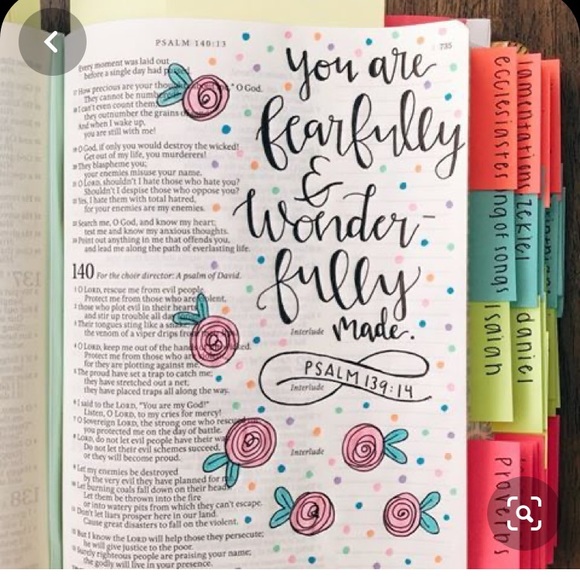 PSALM 140:13
735
Every moment was laid out
before a single day had passed.
17 How precious are your " O God.
They cannot be
18 I can't even count them;
they outnumber the grains
And when I wake up,
you are still with me!
19 O God, if only you would destroy the wicked!
Get out of my life, you murderers!
20 They blaspheme you;
your enemies misuse your name.
21 O LORD, shouldn't I hate those who hate you?
Shouldn't I despise those who oppose you?
22 Yes, I hate them with total hatred,
for your enemies are my enemies.
23 Search me, O God, and know my heart;
test me and know my anxious thoughts.
24 Point out anything in me that offends you,
and lead me along the path of everlasting life.
140 For the choir director: A psalm of David.
1 O LORD, rescue me from evil people.
Protect me from those who are violent,
2 those who plot evil in their hearts
and stir up trouble all day
3 Their tongues sting like a
the venom of a viper drips from
Interlude
4 O LORD, keep me out of the hands wicked.
Protect me from those who are
for they are plotting against me.
5 The proud have set a trap to catch me;
they have stretched out a net;
they have placed traps all along the way.
Interlude
6 I said to the LORD, "You are my God!"
Listen, O LORD, to my cries for mercy!
7 O Sovereign LORD, the strong one who rescued
you protected me on the day of battle.
8 LORD, do not let evil people have their way.
Do not let their evil schemes succeed,
or they will become proud.
Interlude
9 Let my enemies be destroyed
by the very evil they have planned for me
10 Let burning coals fall down on their heads.
Let them be thrown into the fire
or into watery pits from which they can't escape.
11 Don't let liars prosper here in our land.
Cause great disasters to fall on the violent.
12 But I know the LORD will help those they persecute;
he will give justice to the poor.
13 Surely righteous people are praising your name;
the godly will live in your presence.
you are
fearfully
&
Wonder-
fully
made.
PSALM 139:14
ecclesiastes
lamentations
ng of songs
zekiel
isaiah
daniel
Proverbs